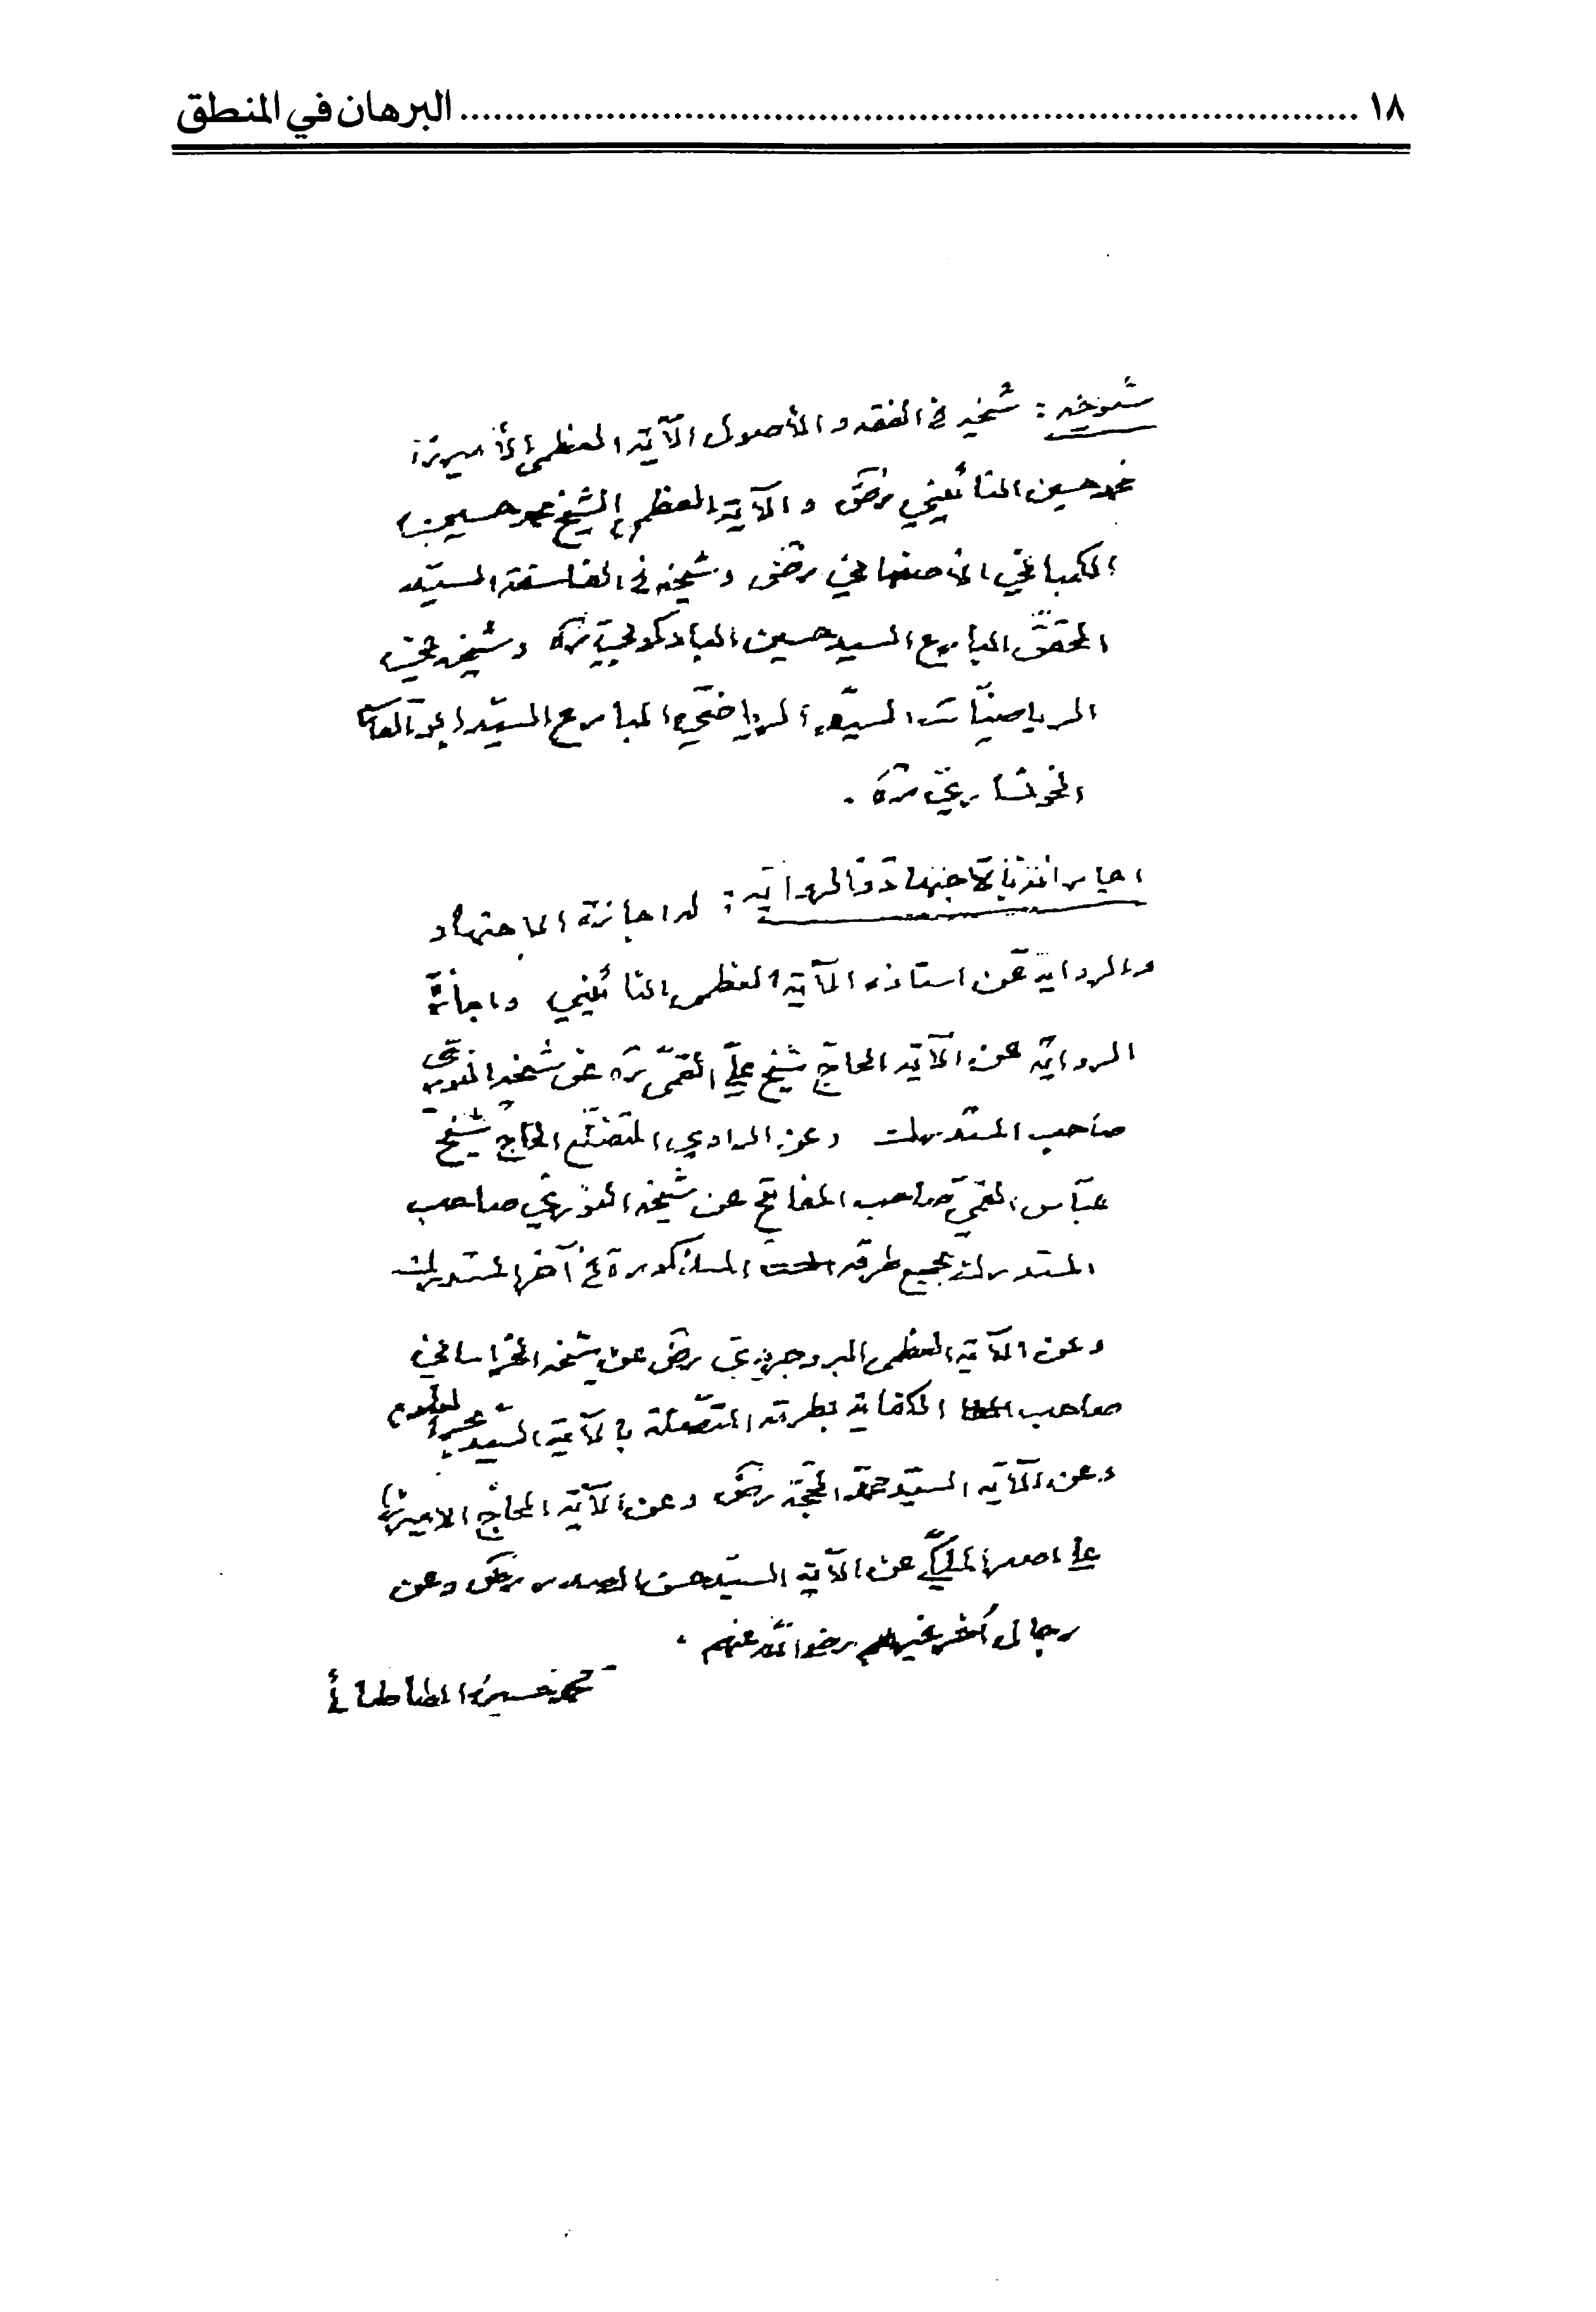 ١٨ ........ البرهان في المنطق
شيوخه : شيخه في الفقه و الأصول الآية العظمى الأميرزا
محمد حسين النائيني رضى و الآية العظمى الشيخ محمد حسين
الكمباني الأصفهاني رضى و شيخه في الفلسفة السيّد
المحقّق البارع السيد حسين البادكوبي ره و شيخه في
الرياضيّات السيّد الرياضي البارع السيّد ابو القاسم
الخونساري ره .
اجازاته بالاجتهاد و الرواية : له اجازة الاجتهاد
و الرواية عن استاذه الآية العظمى النائيني و اجازة
الرواية عن الآية الحاجّ شيخ علي القمّي ره عن شيخه النوري
صاحب المستدرك و عن الراوي المتضلّع الحاج شيخ
عبّاس القمّي صاحب المفاتيح عن شيخه النوري صاحب
المستدرك بجميع طرقه المذكورة في آخر المستدرك
و عن الآية العظمى البروجردي رضى عن شيخه الخراساني
صاحب الكفاية بطرقه المتّصلة بالآية السيّد بحر العلوم
و عن الآية السيّد محمّد الحجّة رضى و عن الآية الحاجّ الاميرزا
علي اصغر الملكي عن الآية السيّد حسن الصدر رضى و عن
رجال أخر غيرهم رضوا الله عنهم .
محمد حسين الطباطبائي